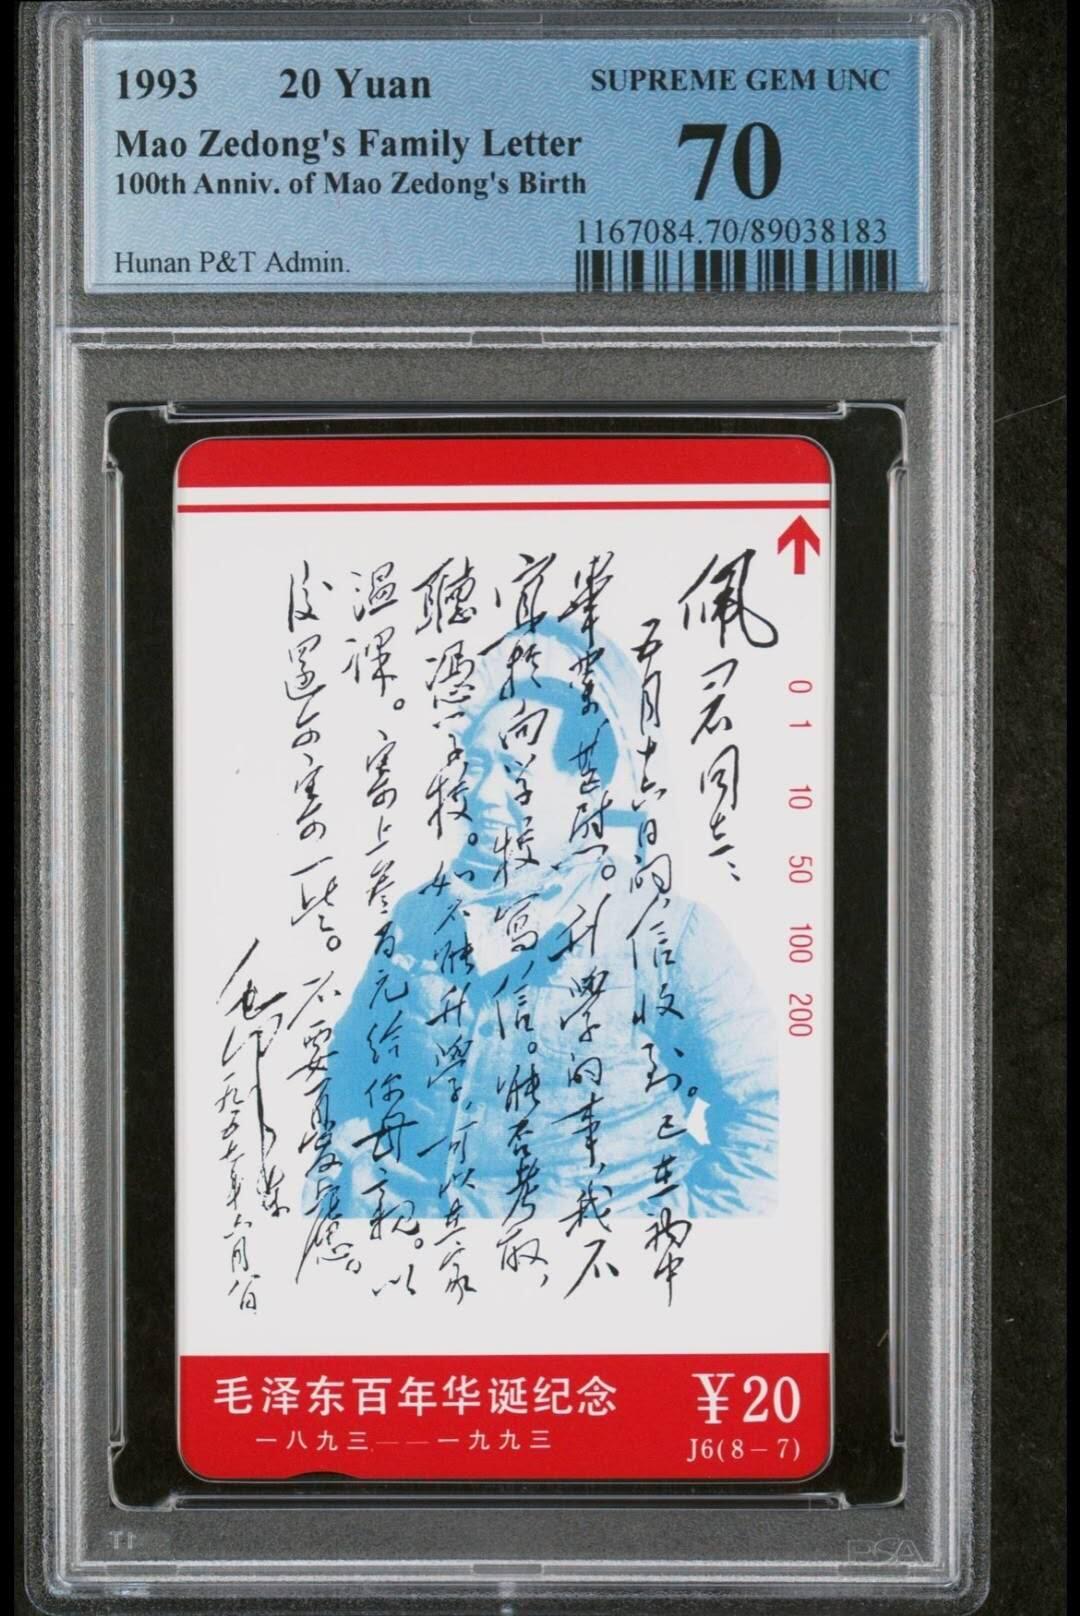 1993 20 Yuan
SUPREME GEM UNC
Mao Zedong's Family Letter
70
100th Anniv. of Mao Zedong's Birth
1167084.70/89038183
Hunan P&T Admin.
佩君同志:
五月十六日的信收到。已在初中
畢業,甚慰。升學的事,我不
宜於向学校写信。能否考取,
聽憑学校。如不能升學,可以在家
温課。寄上叁百元给你母親。以
後還可寄一些。不要憂慮。
毛泽东
一九五七年六月八日
0 1 10 50 100 200
毛泽东百年华诞纪念
一八九三——一九九三
¥20
J6(8－7)
PSA